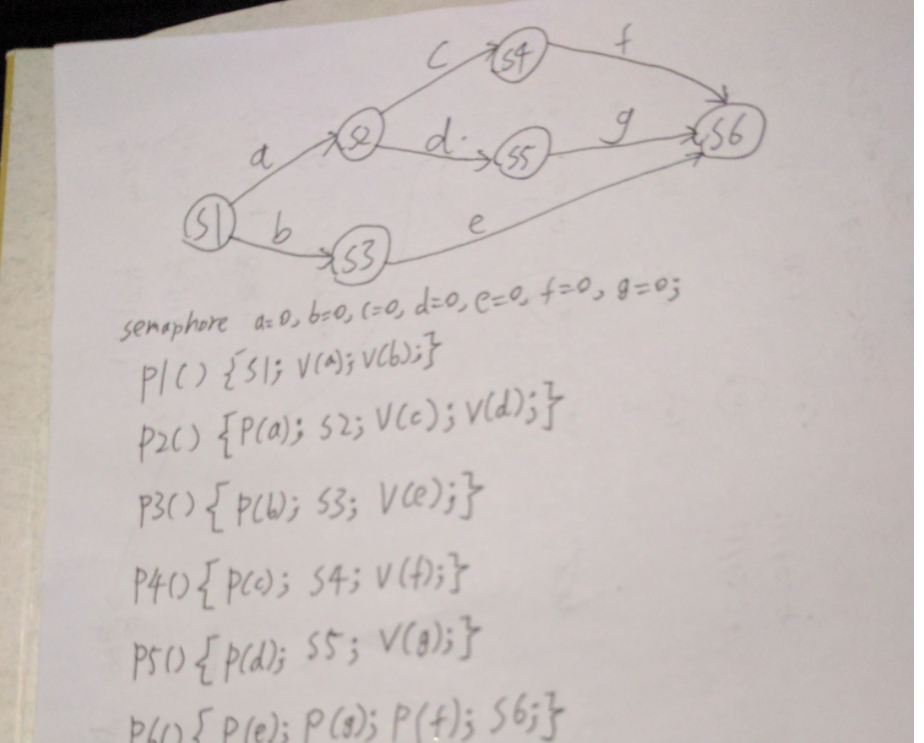 c
f
S4
S2
d
g
S6
S5
a
S1
b
e
S3
semaphore a=0, b=0, c=0, d=0, e=0, f=0, g=0;
P1() {S1; V(a); V(b);}
P2() {P(a); S2; V(c); V(d);}
P3() {P(b); S3; V(e);}
P4() {P(c); S4; V(f);}
P5() {P(d); S5; V(g);}
P6() {P(e); P(g); P(f); S6;}